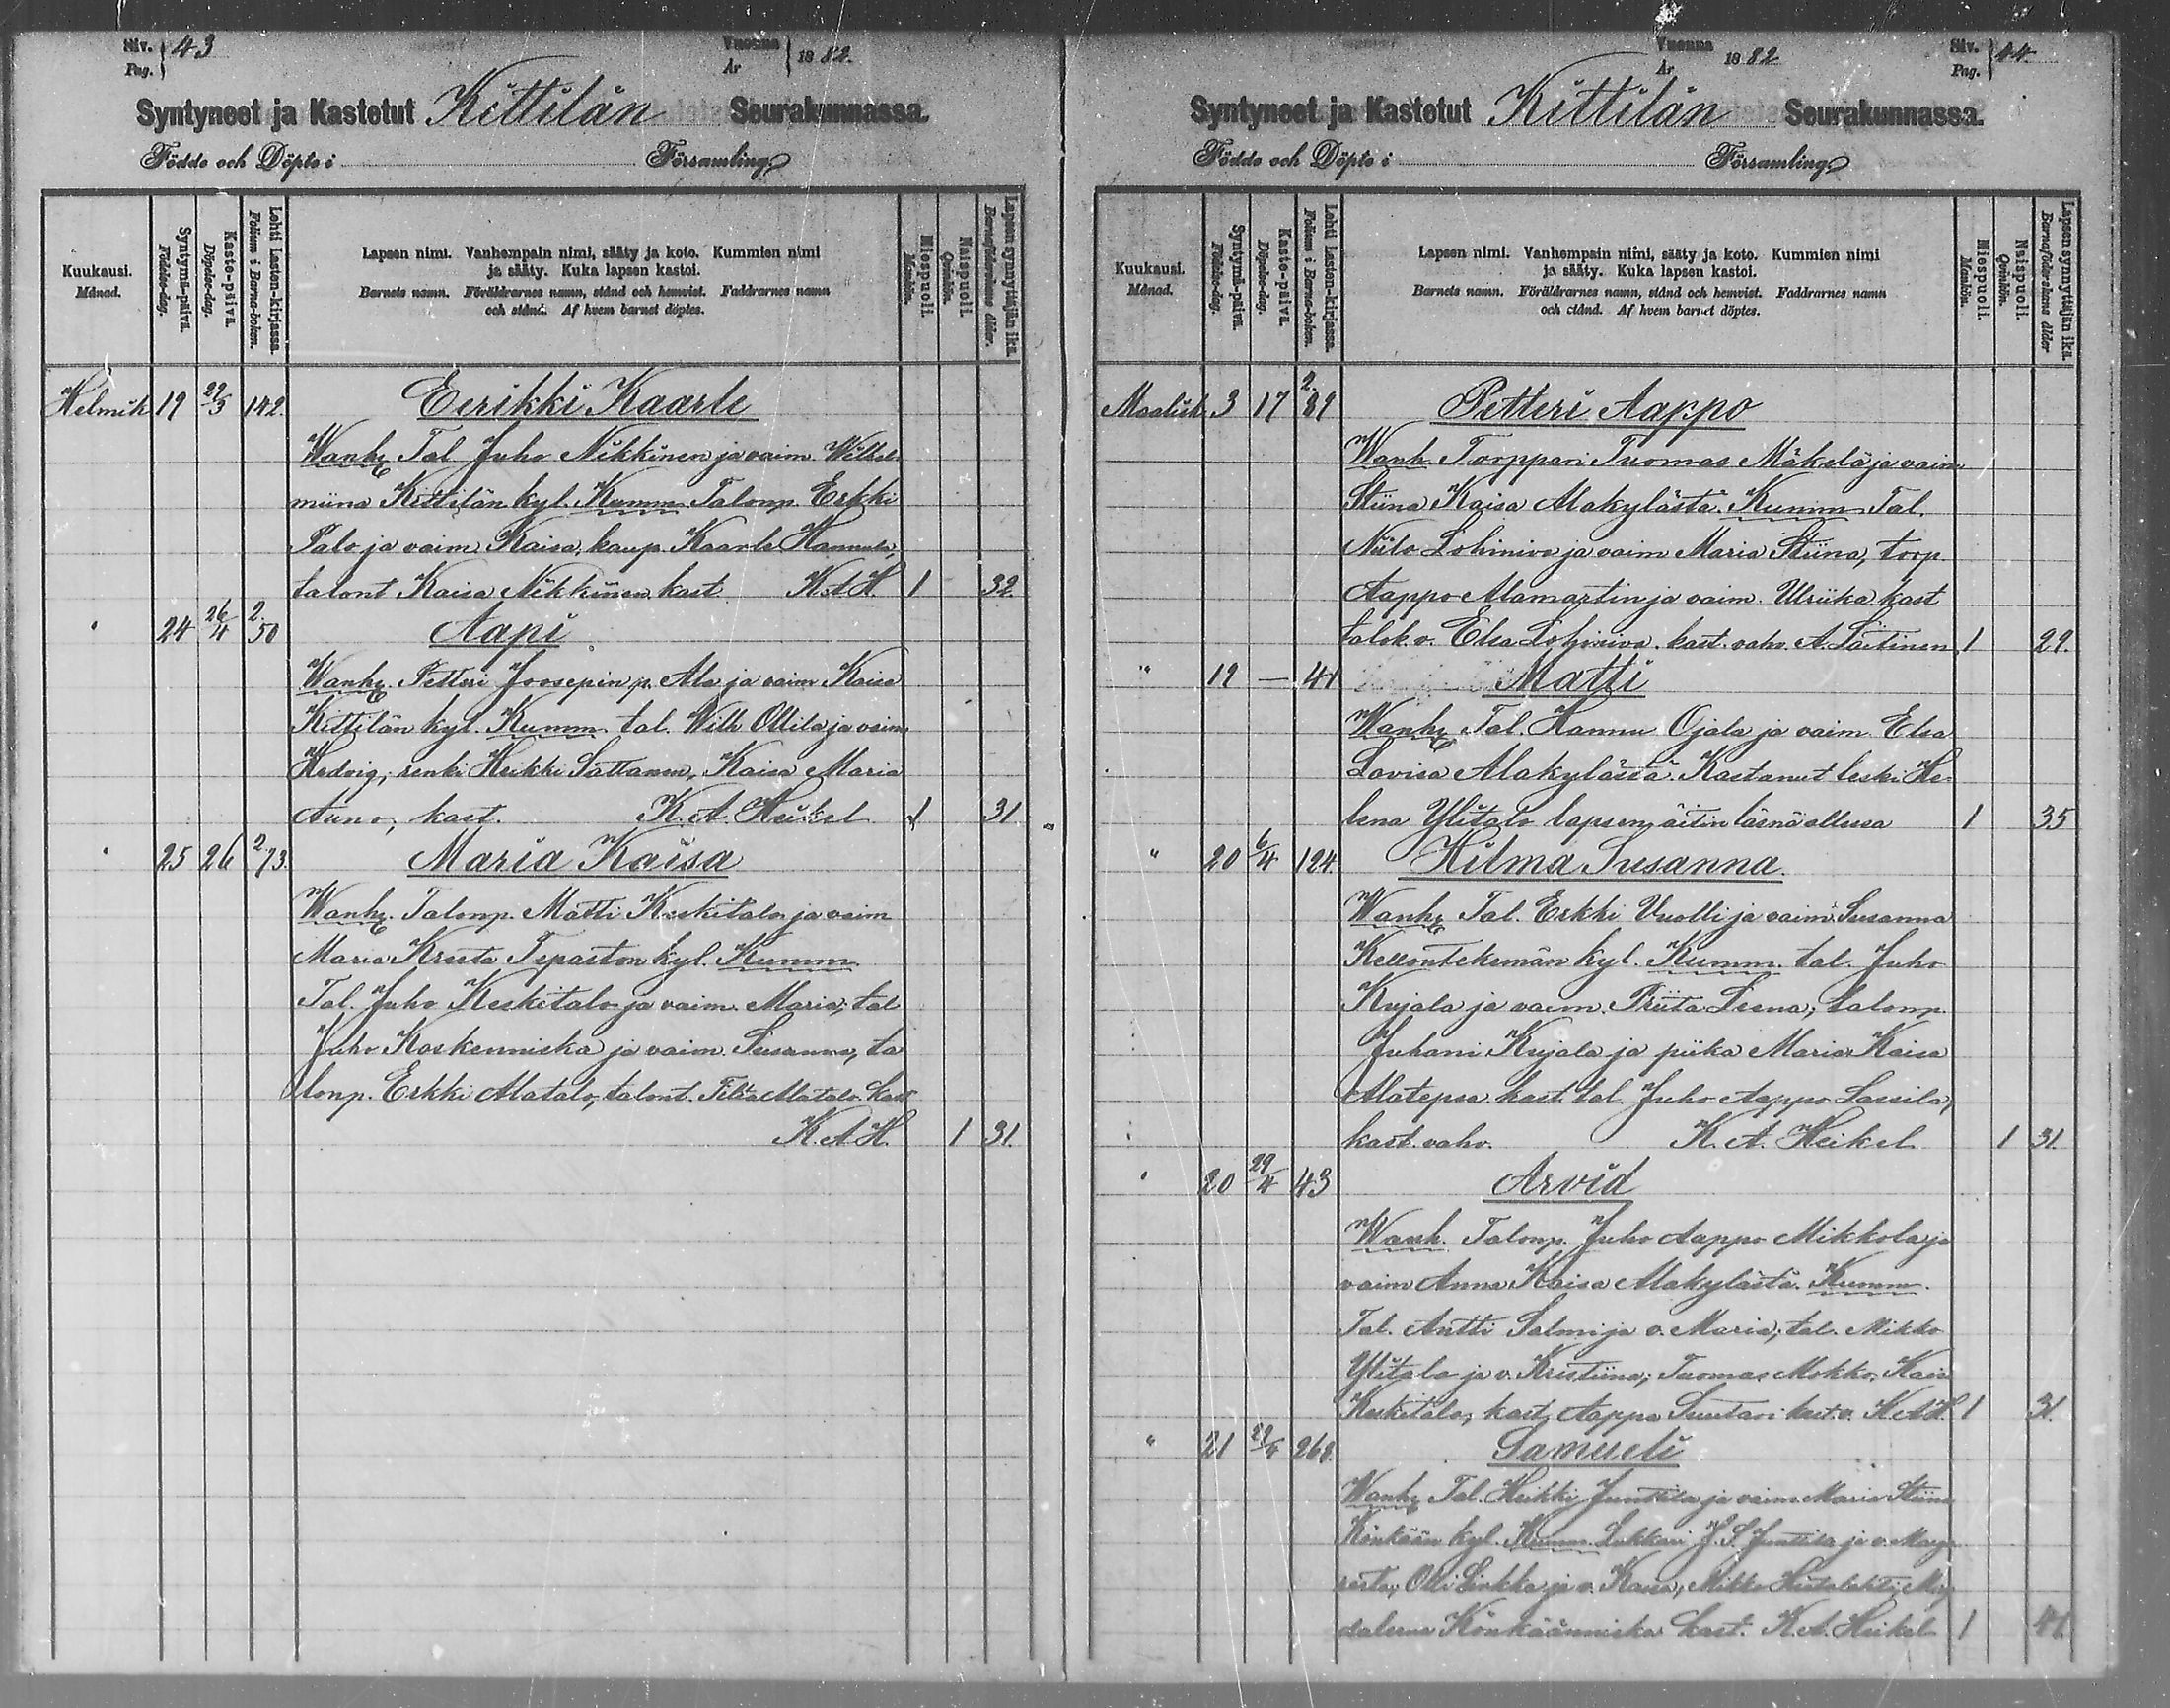 Siv. 43
Pag.
Vuonna 1882.
År
Syntyneet ja Kastetut Kittilän Seurakunnassa.
Födde och Döpte i Församling
Kuukausi. Månad.
Syntymä-päivä. Födelse-dag.
Kaste-päivä. Döpelse-dag.
Lehti Lasten-kirjassa. Folium i Barna-boken.
Lapsen nimi. Vanhempain nimi, sääty ja koto. Kummien nimi
ja sääty. Kuka lapsen kastoi.
Barnets namn. Föräldrarnes namn, stånd och hemvist. Faddrarnes namn
och stånd. Af hvem barnet döptes.
Miespuoli. Mankön.
Naispuoli. Qvinkön.
Lapsen synnyttäjän ikä. Barnaföderskans ålder.
Helmik 19 22/3 142. Eerikki Kaarle
Wanh. Tal Juho Nikkinen ja vaim. Wilhel-
miina Kittilän kyl. Kumm Talonp. Erkki
Palo ja vaim Kaisa, kaup. Kaarle Hannula,
talont Kaisa Nikkinen kast. K A H 1 32
" 24 26/4 2/50 Aapi
Wanh. Petteri Joosepin p. Ala ja vaim Kaisa
Kittilän kyl. Kumm. tal. Wilh Ollila ja vaim
Hedvig, renki Heikki Sattanen, Kaisa Maria
Auno, kast. K. A. Heikel 1 31
" 25 26 2/73. Maria Kaisa
Wanh. Talonp. Matti Keskitalo ja vaim
Maria Kreeta Tepaston kyl. Kumm
Tal. Juho Keskitalo ja vaim. Maria, tal
Juho Koskenniska ja vaim. Susanna, ta
lonp. Erkki Alatalo, talont. Alatalo. Kast
K. A H. 1 31.
Vuonna 1882
År
Siv. 44.
Pag.
Syntyneet ja Kastetut Kittilän Seurakunnassa.
Födde och Döpte i Församling
Kuukausi. Månad.
Syntymä-päivä. Födelse-dag.
Kaste-päivä. Döpelse-dag.
Lehti Lasten-kirjassa. Folium i Barna-boken.
Lapsen nimi. Vanhempain nimi, sääty ja koto. Kummien nimi
ja sääty. Kuka lapsen kastoi.
Barnets namn. Föräldrarnes namn, stånd och hemvist. Faddrarnes namn
och stånd. Af hvem barnet döptes.
Miespuoli. Mankön.
Naispuoli. Qvinkön.
Lapsen synnyttäjän ikä. Barnaföderskans ålder
Maalisk 3 17 2/89 Petteri Aappo
Wanh. Torppari Tuomas Mäkelä ja vaim
Stiina Kaisa Alakylästä. Kumm Tal.
Niilo Lohiniva ja vaim Maria Stiina, torp.
Aappo Alamartin ja vaim. Ulriika kast
talok. v. Elsa Lohiniva. kast. vahv. A. Laitinen 1 29.
" 19 — 41 Matti
Wanh. Tal. Hannu Ojala ja vaim Elsa
Lovisa Alakylässä. Kastanut leski He-
lena Ylitalo lapsen äitin läsnä ollessa 1 35
" 20 6/4 124. Hilma Susanna.
Wanh. Tal. Erkki Vuolli ja vaim Susanna
Kellontekemän kyl. Kumm. tal. Juho
Kujala ja vaim. Priita Leena, talonp.
Juhani Kujala ja piika Maria Kaisa
Alatepsa. kast. tal. Juho Aappo Lassila,
kast. vahv. K. A. Heikel 1 31.
" 20 29/4 43 Arvid
Wanh. Talonp. Juho Aappo Mikkola ja
vaim Anna Kaisa Alakylästä. Kumm.
Tal. Antti Salmi ja v. Maria, tal. Mikko
Ylitalo ja v. Kristiina, Tuomas Mokko, Kaisa
Keskitalo, kast. Aappo Suutari kast. v. K A H. 1 31.
" 21 262. Samueli
Wanh. Tal. Heikki Junttila ja vaim Maria Stiina
Könkään kyl. Kumm. Lukkari J. S. Junttila ja v. Marg
reeta, Olli Sirkka ja v. Kaisa, Mikko Mag
dalena Könkäänniska kast. K. A. Heikel 1 41.